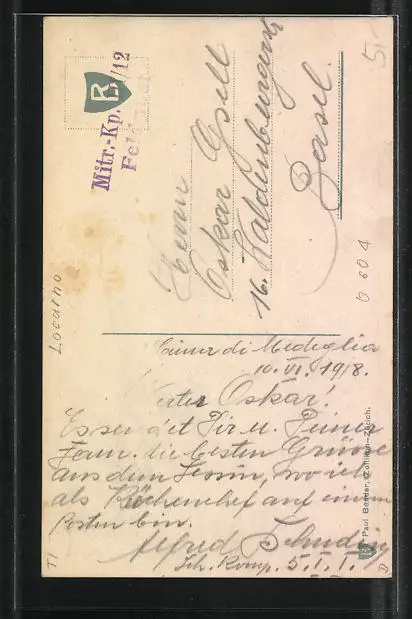 R
Mitr.-Kp. /12
Feldpost
Herrn
Oskar Gsell
16. Waldenburgerstr
Basel.
5.-
0 604
Locarno
di Medeglia
10. VI. 1918.
Werter Oskar!
Es sendet Dir u. Deiner
Fam. die besten Grüsse
aus dem Tessin, wo ich
als Küchenchef auf einem
Posten bin.
Alfred
Sch. Komp. 5. I. I.
TI
Paul Bender, Zollikon-Zürich.